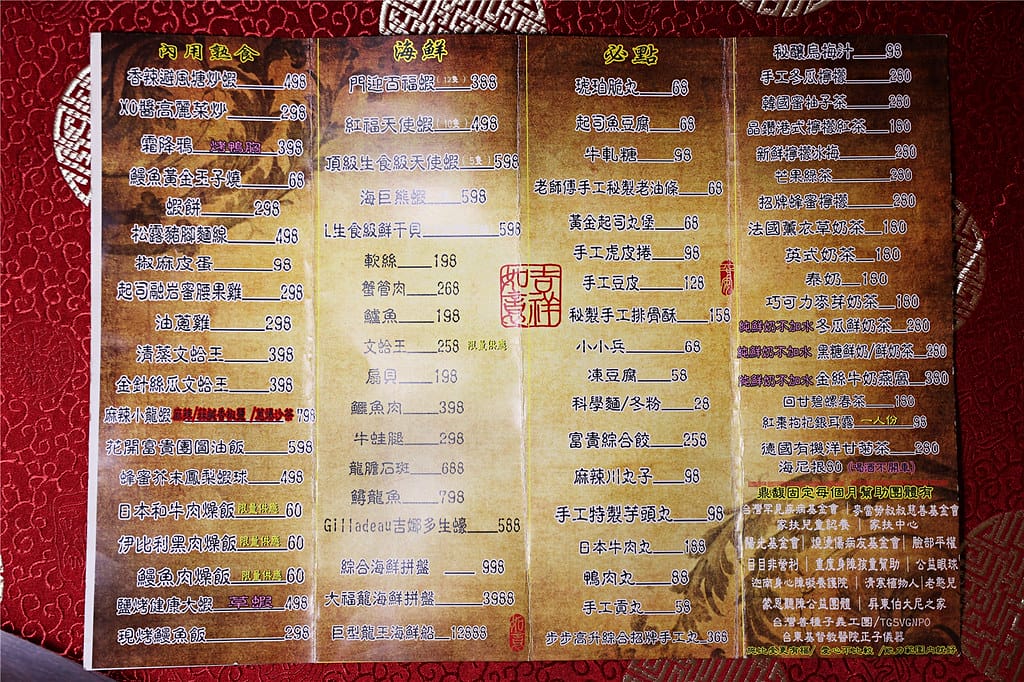 內用熟食
香辣避風塘炒蝦 498
XO醬高麗菜炒 298
霜降鴉 烤鴨胸 398
鰻魚黃金玉子燒 68
蝦餅 298
松露豬腳麵線 498
椒麻皮蛋 98
起司融岩蜜腰果雞 298
油蔥雞 298
清蒸文蛤王 398
金針絲瓜文蛤王 398
麻辣小龍蝦 798
花開富貴團圓油飯 598
蜂蜜芥末鳳梨蝦球 498
日本和牛肉燥飯 限量供應 60
伊比利黑肉燥飯 限量供應 60
鰻魚肉燥飯 限量供應 60
鹽烤健康大蝦 草蝦 498
現烤鰻魚飯 298
海鮮
門迎百福蝦(12隻) 388
紅福天使蝦(10隻) 498
頂級生食級天使蝦(5隻) 598
海巨熊蝦 598
L生食級鮮干貝 598
軟絲 198
蟹管肉 268
鱸魚 198
文蛤王 258 限量供應
扇貝 198
鱷魚肉 398
牛蛙腿 298
龍膽石斑 688
鱘龍魚 798
Gilladeau吉娜多生蠔 588
綜合海鮮拼盤 998
大福龍海鮮拼盤 3988
巨型龍王海鮮船 12888
吉祥如意
必點
琥珀脆丸 68
起司魚豆腐 68
牛軋糖 98
老師傅手工秘製老油條 68
黃金起司丸堡 68
手工虎皮捲 98
手工豆皮 128
秘製手工排骨酥 158
小小兵 68
凍豆腐 58
科學麵/冬粉 28
富貴綜合餃 258
麻辣川丸子 98
手工特製芋頭丸 98
日本牛肉丸 188
鴨肉丸 88
手工貢丸 58
步步高升綜合招牌手工丸 368
秘釀烏梅汁 98
手工冬瓜檸檬 280
韓國蜜柚子茶 280
品鑽港式檸檬紅茶 180
新鮮檸檬冰梅 280
芒果綠茶 280
招牌蜂蜜檸檬 280
法國薰衣草奶茶 180
英式奶茶 180
泰奶 180
巧可力麥芽奶茶 180
純鮮奶不加水 冬瓜鮮奶茶 280
純鮮奶不加水 黑糖鮮奶/鮮奶茶 280
純鮮奶不加水 金絲牛奶燕窩 380
回甘碧螺春茶 180
紅棗枸杞銀耳露 一人份 98
德國有機洋甘菊茶 280
海尼根80 (喝酒不開車)
鼎馥固定每個月幫助團體有
台灣罕見疾病基金會 | 麥當勞叔叔慈善基金會
家扶兒童認養 | 家扶中心
陽光基金會| 燒燙傷病友基金會| 臉部平權
目目非營利 | 重度身障孩童幫助 | 公益眼球
迦南身心障礙養護院 | 清寒植物人| 老憨兒
蒙恩聽障公益團體 | 屏東伯大尼之家
台灣善種子義工團/TGSVGNPO
台東基督教醫院正子儀器